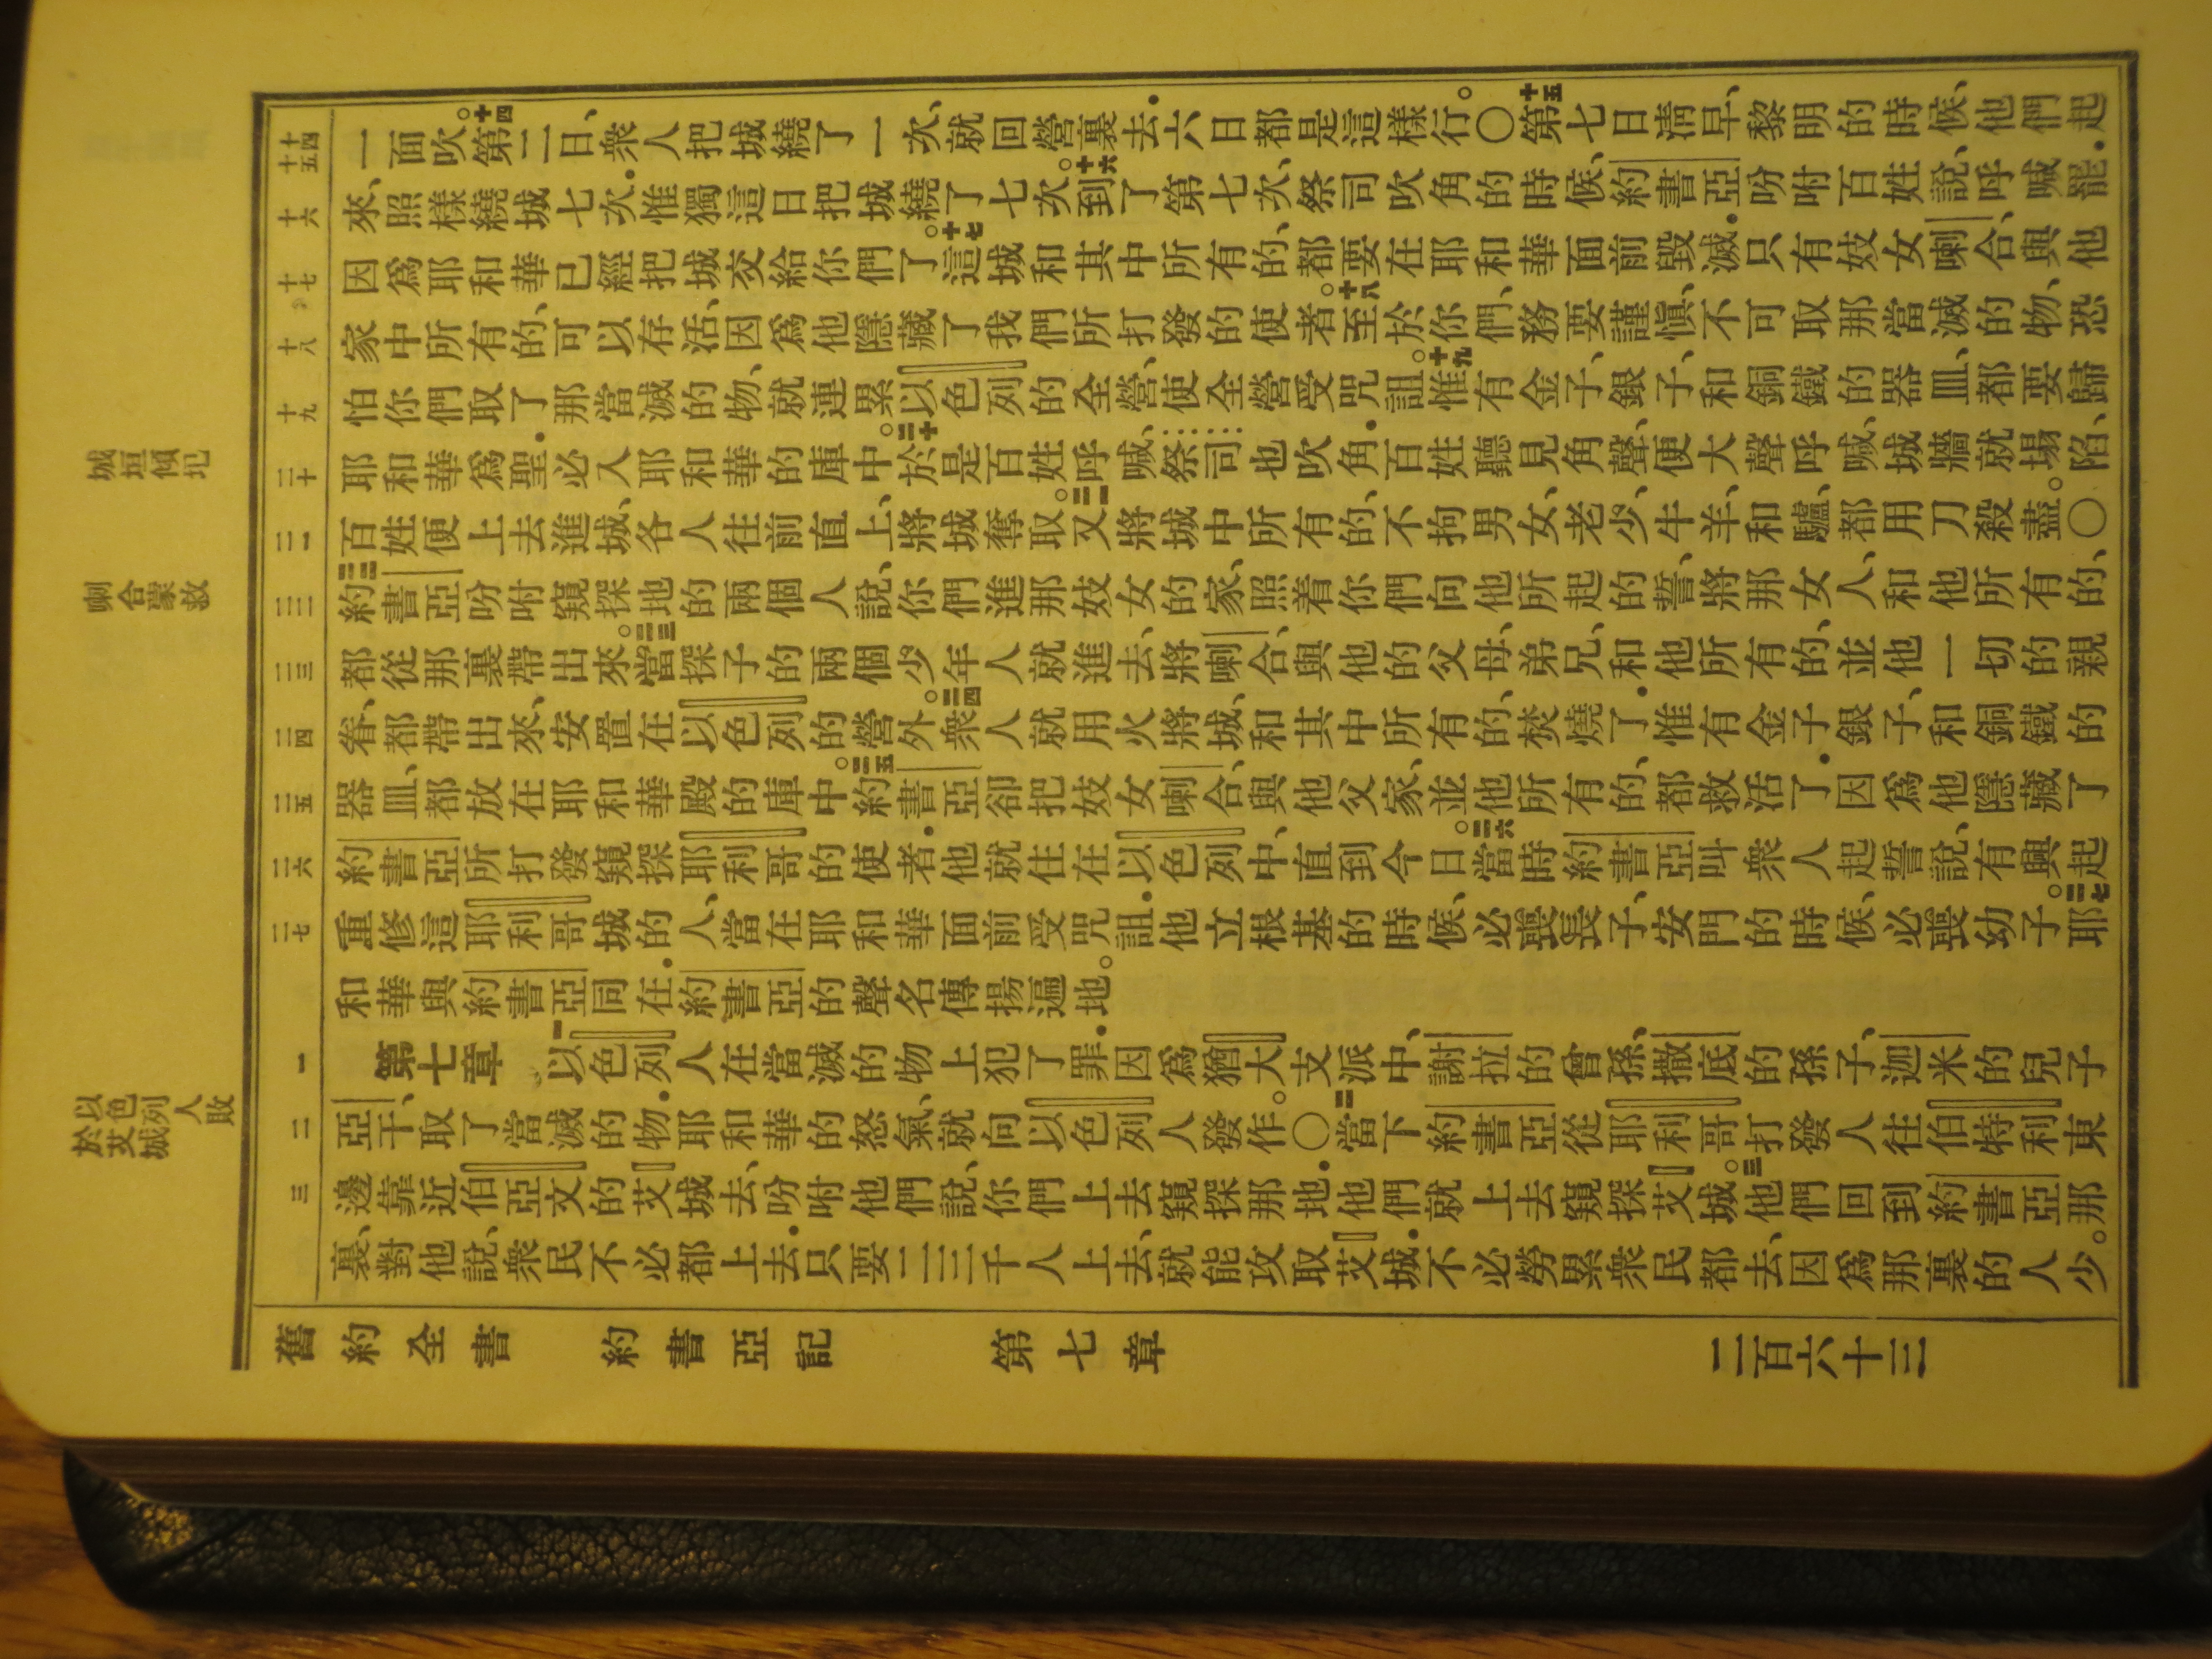 一面吹。十四第二日、衆人把城繞了一次、就回營裏去．六日都是這樣行。〇十五第七日清早、黎明的時候、他們起
來、照樣繞城七次．惟獨這日把城繞了七次。十六到了第七次、祭司吹角的時候、約書亞吩咐百姓說、呼喊罷．
因爲耶和華已經把城交給你們了。十七這城和其中所有的、都要在耶和華面前毀滅．只有妓女喇合、與他
家中所有的、可以存活、因爲他隱藏了我們所打發的使者。十八至於你們、務要謹愼、不可取那當滅的物、恐
怕你們取了那當滅的物、就連累以色列的全營、使全營受咒詛。十九惟有金子、銀子、和銅鐵的器皿、都要歸
耶和華爲聖．必入耶和華的庫中。二十於是百姓呼喊、祭司也吹角．百姓聽見角聲、便大聲呼喊、城牆就塌陷、
百姓便上去進城、各人往前直上、將城奪取。二一又將城中所有的、不拘男女、老少、牛羊、和驢、都用刀殺盡。〇
二二約書亞吩咐窺探地的兩個人說、你們進那妓女的家、照着你們向他所起的誓、將那女人、和他所有的、
都從那裏帶出來。二三當探子的兩個少年人就進去、將喇合、與他的父母、弟兄、和他所有的、並他一切的親
眷、都帶出來、安置在以色列的營外。二四衆人就用火將城、和其中所有的、焚燒了．惟有金子、銀子、和銅鐵的
器皿、都放在耶和華殿的庫中。二五約書亞卻把妓女喇合、與他父家、並他所有的、都救活了．因爲他隱藏了
約書亞所打發窺探耶利哥的使者．他就住在以色列中、直到今日。二六當時約書亞叫衆人起誓說、有興起
重修這耶利哥城的人、當在耶和華面前受咒詛．他立根基的時候、必喪長子、安門的時候、必喪幼子。二七耶
和華與約書亞同在．約書亞的聲名傳揚遍地。
第七章 一以色列人在當滅的物上犯了罪．因爲猶大支派中、謝拉的曾孫、撒底的孫子、迦米的兒子
亞干、取了當滅的物．耶和華的怒氣、就向以色列人發作。〇二當下約書亞從耶利哥打發人往伯特利東
邊靠近伯亞文的艾城去、吩咐他們說、你們上去窺探那地．他們就上去窺探艾城。三他們回到約書亞那
裏、對他說、衆民不必都上去．只要二三千人上去、就能攻取艾城．不必勞累衆民都去、因爲那裏的人少。
舊約全書 約書亞記 第七章 二百六十三
十四
十五
十六
十七
十八
十九
二十
二一
二二
二三
二四
二五
二六
二七
一
二
三
城垣傾圯
喇合蒙救
以色列人敗
於艾城